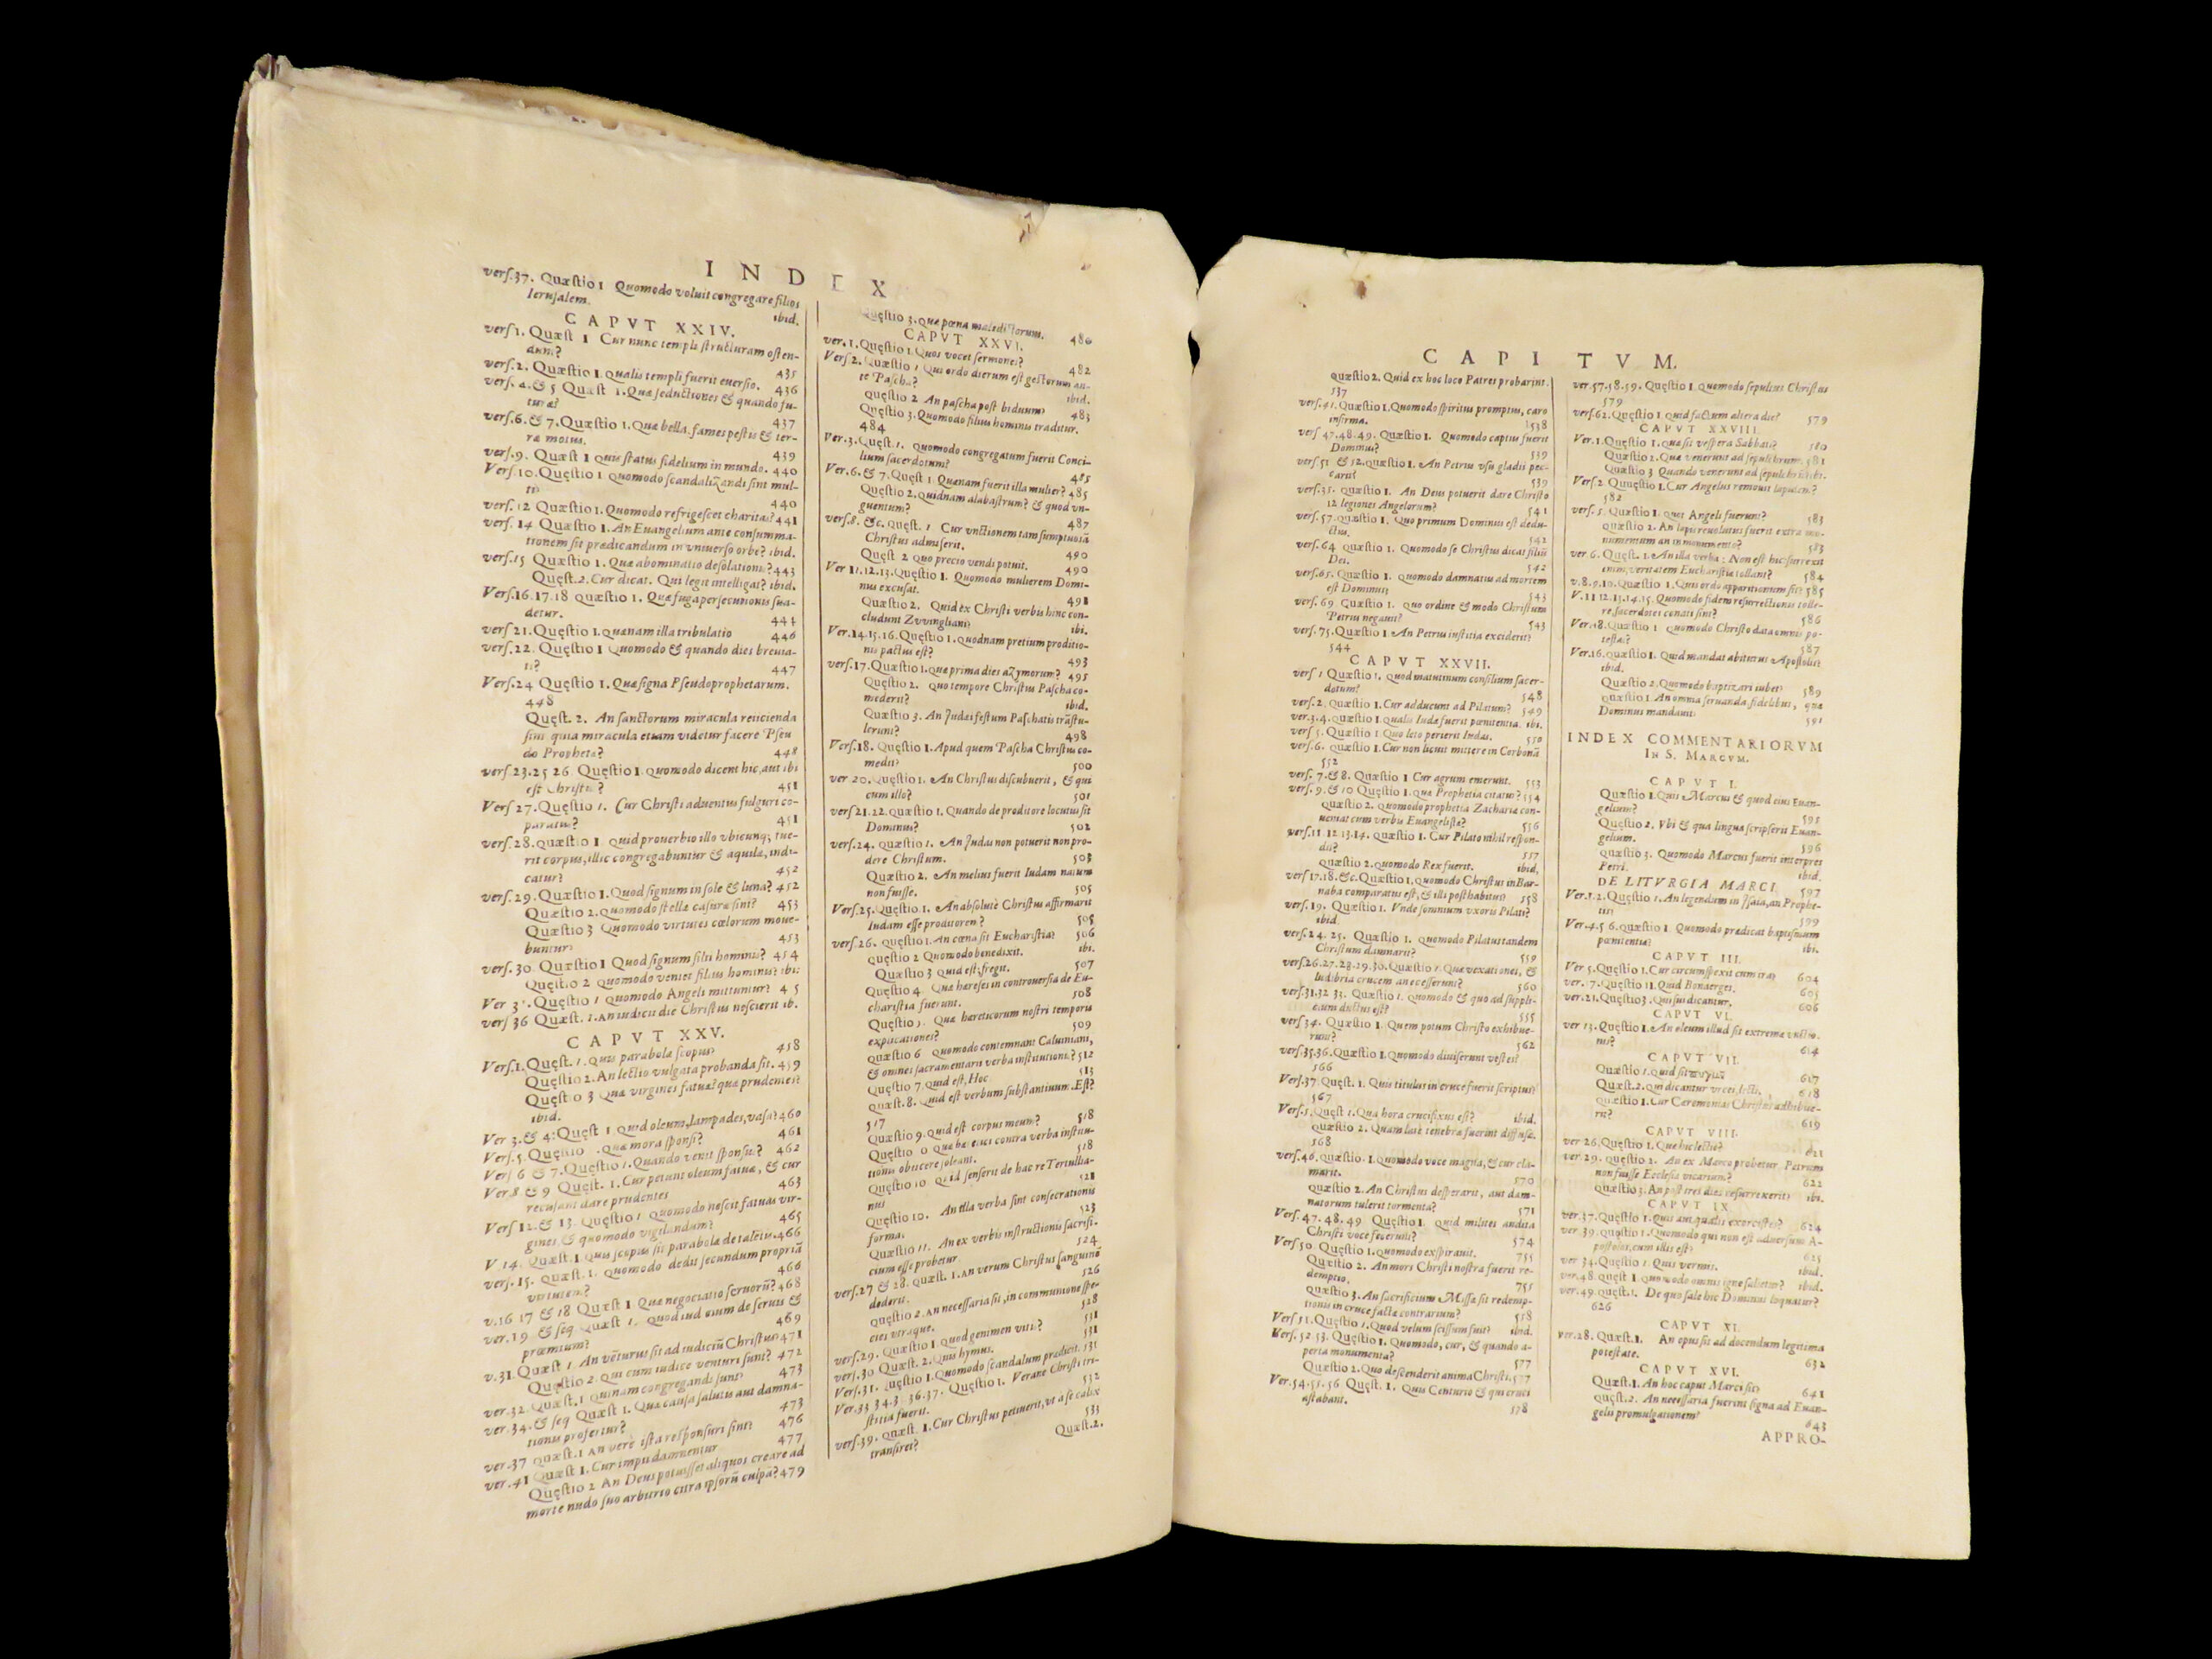 INDEX
vers.37. Quæstio 1 Quomodo voluit congregare filios
Ierusalem. ibid.
CAPVT XXIV.
vers 1. Quæst 1 Cur nunc templi structuram osten-
dunt? 435
vers.2. Quæstio 1. Qualis templi fuerit eversio. 436
vers. 4. & 5 Quæst 1. Quæ seductiones & quando fu-
turæ? 437
vers.6. & 7. Quæstio 1. Quæ bella, fames pestis & ter-
ræ motus. 439
vers.9. Quæst 1 Quis status fidelium in mundo. 440
Vers.10. Quęstio 1 Quomodo scandalizandi sint mul-
ti? 440
vers. 12 Quæstio 1. Quomodo refrigescet charitas? 441
vers. 14 Quæstio 1. An Euangelium ante consumma-
tionem sit prædicandum in vniuerso orbe? ibid.
vers.15 Quæstio 1. Quæ abominatio desolationis? 443
Quęst.2. Cur dicat. Qui legit intelligat? ibid.
Vers.16.17.18 quæstio 1. Quæ fuga persecutionis sua-
detur. 444
vers 21. Quęstio 1. quænam illa tribulatio 446
vers.22. Quęstio 1 Quomodo & quando dies breuia-
ti? 447
Vers.24 Quęstio 1. Quæ signa Pseudoprophetarum.
448
Quęst. 2. An sanctorum miracula reiicienda
sint quia miracula etiam videtur facere Pseu
do Propheta? 448
vers 23.25 26. Quęstio 1. quomodo dicent hic, aut ibi
est Christus? 451
Vers 27. Quęstio 1. Cur Christi aduentus fulguri co-
paratus? 451
vers.28. quæstio 1. quid prouerbio illo vbicunq; fue-
rit corpus, illic congregabuntur & aquilæ, indi-
catur? 452
vers.29. Quæstio 1. Quod signum in sole & luna? 452
Quæstio 2. quomodo stellæ casuræ sint? 453
Quæstio 3 Quomodo virtutes cœlorum moue-
buntur? 453
vers. 30. Quæstio 1 Quod signum filii hominis? 454
Quęstio 2 quomodo veniet filius hominis? ibi:
Ver 31. Quęstio 1 quomodo Angeli mittuntur? 45
vers 36 Quæst. 1. An iudicii die Christus nescierit ib.
CAPVT XXV.
Vers.1. Quęst. 1. Quis parabolæ scopus? 458
Quęstio 2. An lectio vulgata probanda sit. 459
Quęstio 3 Quæ virgines fatuæ? quæ prudentes?
ibid.
Ver 3. & 4: Quęst 1 Quid oleum, lampades, vasa? 460
Vers.5. Quęstio . Quæ mora sponsi? 461
Vers 6 & 7. Quęstio 1. Quando venit sponsus? 462
Ver.8 & 9 Quęst. 1. Cur petunt oleum fatuæ, & cur
recusant dare prudentes 463
Vers 12. & 13. Quęstio 1 quomodo nescit fatuas vir-
gines & quomodo vigilandum? 465
V 14. Quæst. 1 Quis scopus sit parabolæ de talētis. 466
vers. 15. quæst. 1. quomodo dedit secundum propriā
virtutem? 466
v.16 17 & 18 Quæst 1 Quæ negociatio seruorū? 468
ver.19 & seq Quæst 1. Quod iudicium de seruis &
præmium? 469
v.31. Quæst 1. An vēturus sit ad iudiciū Christus? 471
Quęstio 2 qui cum iudice venturi sunt? 472
ver.32. Quæst. 1 quinam congregandi sunt? 473
ver.34. & seq Quæst 1. Quæ causa salutis aut damna-
tionis profertur? 473
ver.37 quæst. 1 An verè ista responsuri sint? 476
ver.41 Quæst 1. Cur impii damnentur 477
Quęstio 2 An Deus potuisset aliquos creare ad
morte nudo suo arbitrio citra ipsorū culpā? 479
Quęstio 3. quæ pœna maledictorum. 480
CAPVT XXVI.
ver. 1. Quęstio 1. Quos vocet sermones? 482
Vers 2. Quæstio 1 Qui ordo dierum est gestorum an-
te Pascha? ibid.
quęstio 2 An pascha post biduum? 483
Quęstio 3. Quomodo filius hominis traditur.
484
Ver. 3. Quęst. 1. quomodo congregatum fuerit Conci-
lium sacerdotum? 485
Ver.6. & 7. Quęst 1 Quænam fuerit illa mulier? 485
Quęstio 2. quidnam alabastrum? & quod vn-
guentum? 487
vers.8. &c. quęst. 1 Cur vnctionem tam sumptuosā
Christus admiserit. 490
Quęst 2 Quo precio vendi potuit. 490
Ver 11.12.13. Quęstio 1. Quomodo mulierem Domi-
nus excusat. 491
Quæstio 2. Quid ex Christi verbis hinc con-
cludunt Zvvingliani? ibi.
Ver.14.15.16. Quęstio 1. quodnam pretium proditio-
nis pactus est? 493
vers.17. Quæstio 1. quæ prima dies azymorum? 495
Quęstio 2. quo tempore Christus Pascha co-
mederit? ibid.
Quæstio 3. An Judæi festum Paschatis trāstu-
lerunt? 498
Vers.18. Quęstio 1. Apud quem Pascha Christus co-
medit? 500
ver 20. Quęstio 1. An Christus discubuerit, & qui
cum illo? 501
vers 21. 22. quæstio 1. Quando de proditore locutus sit
Dominus? 502
vers.24. quæstio 1. An Judas non potuerit non pro-
dere Christum. 503
Quæstio 2. An melius fuerit Iudam natum
non fuisse. 505
Vers.25. Quęstio 1. An absolutè Christus affirmarit
Iudam esse proditorem? 505
vers.26. quęstio 1. An cœna sit Eucharistia? 506
quęstio 2 Quomodo benedixit. ibi.
Quæstio 3 quid est, fregit. 507
Quæstio 4 Quæ hæreses in controuersia de Eu-
charistia fuerunt. 508
Quæstio 5. Quæ hæreticorum nostri temporis
explicationes? 509
quæstio 6 Quomodo contemnant Caluiniani,
& omnes sacramentarii verba institutionis? 512
Quęstio 7. quid est, Hoc 513
quæst. 8. Quid est verbum substantiuum. Est?
517
Quæstio 9. quid est corpus meum? 518
Quęstio 0 Quæ hæretici contra verba institu-
tionis obiicere soleant. 518
Quæstio 10 Quid senserit de hac re Tertullia-
nus 521
Quæstio 10. An illa verba sint consecrationis
forma. 523
Quæstio 11. An ex verbis institutionis sacrifi-
cium esse probetur 524
vers.27 & 28. quæst. 1. An verum Christus sanguinē
dederit. 526
quęstio 2 An necessaria sit, in communione spe-
cies vtraque. 528
vers.29. Quæstio 1 Quod genimen vitis? 531
vers.30 Quæst. 2. Quis hymnus. 531
Vers.31. quęstio 1. Quomodo scandalum prædicit. 531
Ver.33 34.3 36.37. Quęstio 1. Verane Christi tri-
stitia fuerit. 532
vers.39. quæst. 1. Cur Christus petiuerit, vt a se calix
transiret? 533
Quæst.2.
CAPITVM.
quæstio 2. Quid ex hoc loco Patres probarint.
537
vers.41. Quæstio 1. Quomodo spiritus promptus, caro
infirma. 538
vers 47.48.49. Quæstio 1. Quomodo captus fuerit
Dominus? 539
vers 51 & 52. quæstio 1. An Petrus vsu gladii pec-
carit? 539
vers.35. quæstio 1. An Deus potuerit dare Christo
12 legiones Angelorum? 541
vers.57. quæstio 1. Quo primum Dominus est dedu-
ctus. 542
vers.64 quæstio 1. Quomodo se Christus dicat filiū
Dei. 542
vers.65. Quæstio 1. quomodo damnatus ad mortem
est Dominus 543
vers. 69 Quæstio 1. quo ordine & modo Christum
Petrus negauit? 543
vers. 75. Quæstio 1 An Petrus iustitia exciderit?
544
CAPVT XXVII.
vers 1 Quæstio 1. Quod matutinum consilium sacer-
dotum? 548
vers.2. Quæstio 1. Cur adducunt ad Pilatum? 549
ver.3.4. Quæstio 1. qualis Iudæ fuerit pœnitentia. ibi.
vers 5. Quæstio 1 Quo leto perierit Iudas. 550
vers.6. Quæstio 1. Cur non licuit mittere in Corbonā
552
vers. 7. & 8. Quæstio 1 Cur agrum emerunt. 553
vers. 9. & 10 Quęstio 1. quæ Prophetia citatur? 554
Quæstio 2. quomodo prophetia Zachariæ con-
ueniat cum verbis Euangelistæ? 556
vers.11.12.13.14. quæstio 1. Cur Pilato nihil respon-
dit? 557
quæstio 2. quomodo Rex fuerit. ibid.
vers 17.18. &c. Quæstio 1. quomodo Christus in Bar-
naba comparatus est, & illi posthabitus? 558
vers.19. Quæstio 1. Vnde somnium vxoris Pilati?
ibid.
vers.24.25. Quæstio 1. quomodo Pilatus tandem
Christum damnarit? 559
vers.26.27.28.29.30. Quæstio 1. Quæ vexationes, &
ludibria crucem antecesserunt? 560
vers.31.32 33. Quæstio 1. quomodo & quo ad suppli-
cium ductus est? 555
vers 34. Quæstio 1. Quem potum Christo exhibue-
runt? 562
vers.35.36. Quæstio 1. Quomodo diuiserunt vestes?
566
Vers.37. Quęst. 1. Quis titulus in cruce fuerit scriptus?
567
Vers.5. Quęst 1. Qua hora crucifixus est? ibid.
quæstio 2. Quam latè tenebræ fuerint diffusæ.
568
vers.46. quæstio. 1. quomodo voce magna, & cur cla-
marit. 570
quæstio 2. An Christus desperarit, aut dam-
natorum tulerit tormenta? 571
Vers. 47. 48. 49 Quęstio 1. quid milites audita
Christi voce fecerunt? 574
Vers 50 Quęstio 1. quomodo expirauit. 755
Quæstio 2. An mors Christi nostra fuerit re-
demptio. 755
quæstio 3. An sacrificium Missæ sit redemp-
tionis in cruce factæ contrarium? 558
Vers 51. Quęstio 1. Quod velum scissum fuit? ibid.
Vers. 52 53. Quęstio 1. Quomodo, cur, & quando a-
perta monumenta? 577
Quæstio 2. Quo descenderit anima Christi. 577
Ver.54.55.56 Quęst. 1. Quis Centurio & qui cruci
astabant. 578
ver.57.58.59. Quęstio 1 Quomodo sepultus Christus
579
vers.62. Quęstio 1. quid factum altera die? 579
CAPVT XXVIII.
Ver.1. Quęstio 1. quæ sit vespera Sabbati? 580
Quæstio 2. Quæ venerunt ad sepulchrum. 581
Quæstio 3 Quando venerunt ad sepulchrū? ibi.
Vers 2. Quuęstio 1. Cur Angelus remouit lapidem?
582
vers. 5. Quæstio 1. quot Angeli fuerunt? 583
quæstio 2. An lapis reuolutus fuerit extra mo-
numentum an in monumento? 583
ver 6. Quęst. 1. An illa verba: Non est hic: surrexit
enim, veritatem Eucharistiæ tollant? 584
v.8.9.10. Quæstio 1. Quis ordo apparitionum sit? 585
V.11 12.13.14.15. Quomodo fidem resurrectionis tolle-
re, sacerdotes conati sint? 586
Ver.18. Quæstio 1 quomodo Christo data omnis po-
testas? 587
Ver.16. quæstio 1. Quid mandat abituris Apostolis?
ibid.
Quæstio 2. Quomodo baptizari iubet? 589
quæstio 1. An omnia seruanda fidelibus, quæ
Dominus mandauit? 591
INDEX COMMENTARIORVM
IN S. MARCVM.
CAPVT I.
Quæstio 1. Quis Marcus & quod eius Euan-
gelium? 595
Quęstio 2. Vbi & qua lingua scripserit Euan-
gelium. 596
quæstio 3. Quomodo Marcus fuerit interpres
Petri. ibid.
DE LITVRGIA MARCI. 597
Ver.1.2. Quęstio 1. An legendum in Jsaia, an Prophe-
tis? 599
Ver.4.5 6. quæstio 1. Quomodo prædicat baptismum
pœnitentiæ? ibi.
CAPVT III.
Ver 5. Quęstio 1. Cur circumspexit cum ira? 604
ver. 17. Quęstio 11. Quid Bonaerges. 605
ver.21. Quęstio 3. Qui sui dicantur. 606
CAPVT VI.
ver 13. Quęstio 1. An oleum illud sit extremæ vnctio-
nis? 614
CAPVT VII.
Quæstio 1. Quid sit πυγμῇ 617
Quæst.2. Qui dicantur vrcei, lecti. 618
Quæstio 1. Cur Ceremonias Christus adhibue-
rit? 619
CAPVT VIII.
ver 26. Quęstio 1. Quæ hic lectio? 621
ver 29. quæstio 2. An ex Marco probetur Petrum
non fuisse Ecclesiæ vicarium? 622
quæstio 3. An post tres dies resurrexerit? ibi.
CAPVT IX
ver.37. Quęstio 1. Quis aut qualis exorcistes? 624
ver.39. quæstio 1. Quomodo qui non est aduersum A-
postolos, cum illis est? 625
ver 34. Quęstio 1. Quis vermis. ibid.
ver.48. quęst 1. quomodo omnis igne salietur? ibid.
ver.49. quęst.1. De quo sale hic Dominus loquatur?
626
CAPVT XI.
ver.28. Quæst.1. An opus sit ad docendum legitima
potestate. 632
CAPVT XVI.
Quæst.1. An hoc caput Marci sit? 641
quęst.2. An necessaria fuerint signa ad Euan-
gelii promulgationem? 643
APPRO-